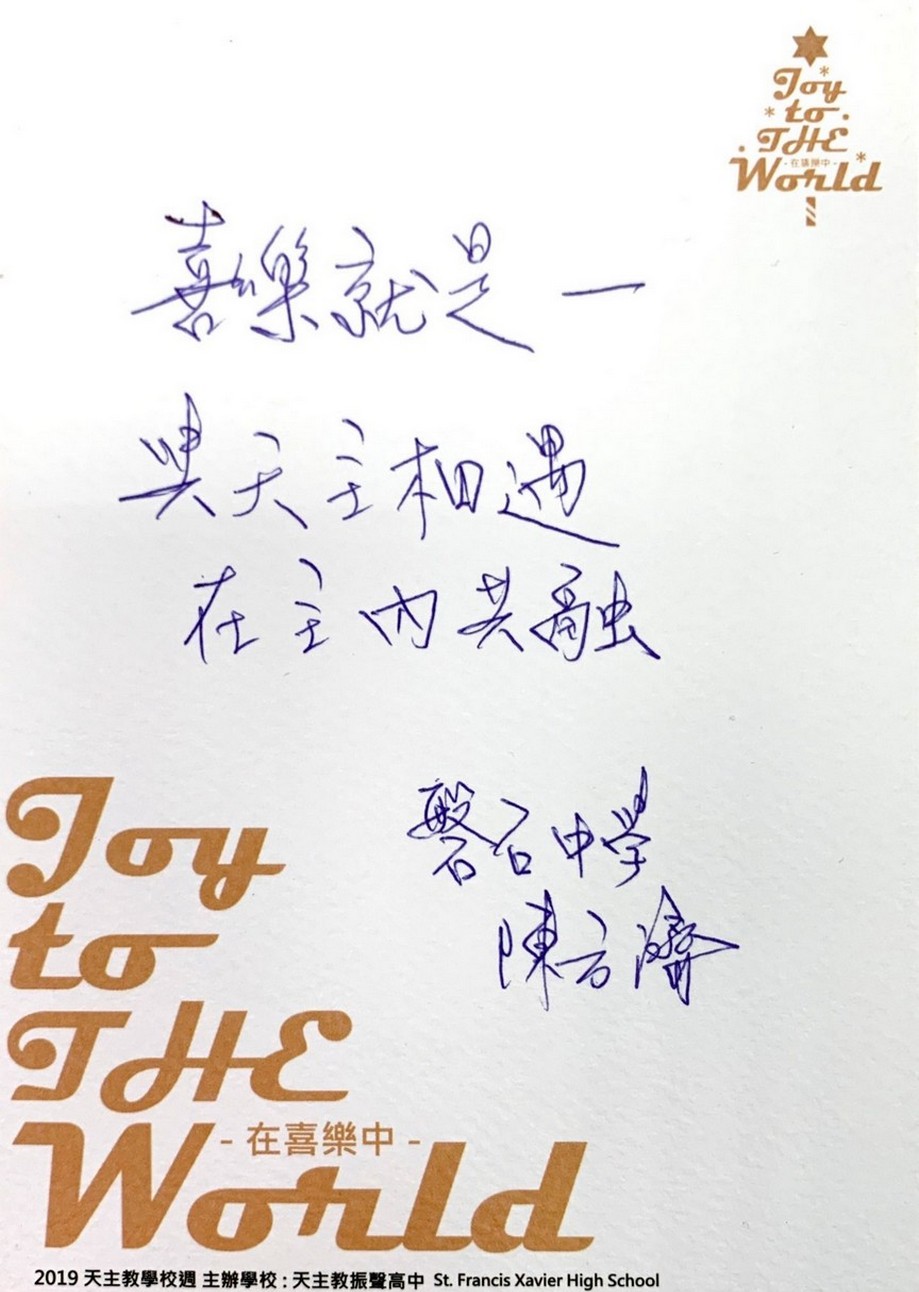 Joy
to
THE
- 在喜樂中 -
World
喜樂就是 —
與天主相遇
在主內共融
磐石中學
陳方濟
Joy
to
THE
- 在喜樂中 -
World
2019 天主教學校週 主辦學校 : 天主教振聲高中 St. Francis Xavier High School